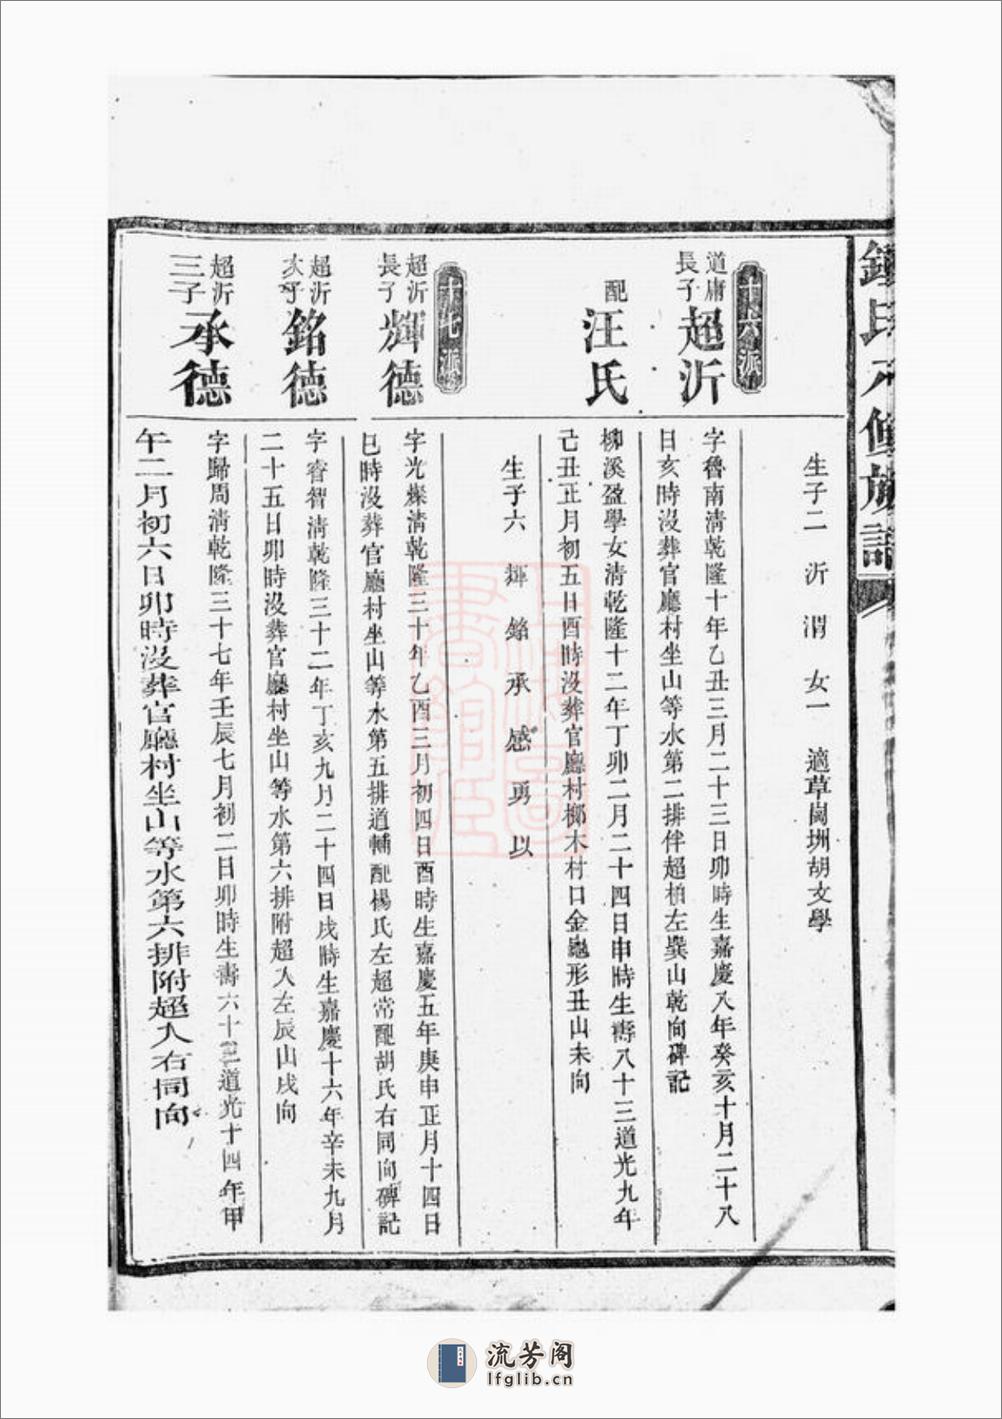 鍾氏八修族譜
生子二 沂 渭 女一 適草崗圳胡文學
十六派
道庸長子 超沂
字魯南淸乾隆十年乙丑三月二十三日卯時生嘉慶八年癸亥十月二十八
日亥時沒葬官廳村坐山等水第二排伴超柏左巽山乾向碑記
配汪氏
柳溪盈學女淸乾隆十二年丁卯二月二十四日申時生壽八十三道光九年
己丑正月初五日酉時沒葬官廳村挷木村口金龜形丑山未向
生子六 輝 銘 承 感 勇 以
十七派
超沂長子 輝德
字光燦淸乾隆三十年乙酉三月初四日酉時生嘉慶五年庚申正月十四日
巳時沒葬官廳村坐山等水第五排道輔配楊氏左超常配胡氏右同向碑記
超沂次子 銘德
字睿智淸乾隆三十二年丁亥九月二十四日戌時生嘉慶十六年辛未九月
二十五日卯時沒葬官廳村坐山等水第六排附超人左辰山戌向
超沂三子 承德
字歸周淸乾隆三十七年壬辰七月初二日卯時生壽六十三道光十四年甲
午二月初六日卯時沒葬官廳村坐山等水第六排附超人右同向
流芳阁
lfglib.cn